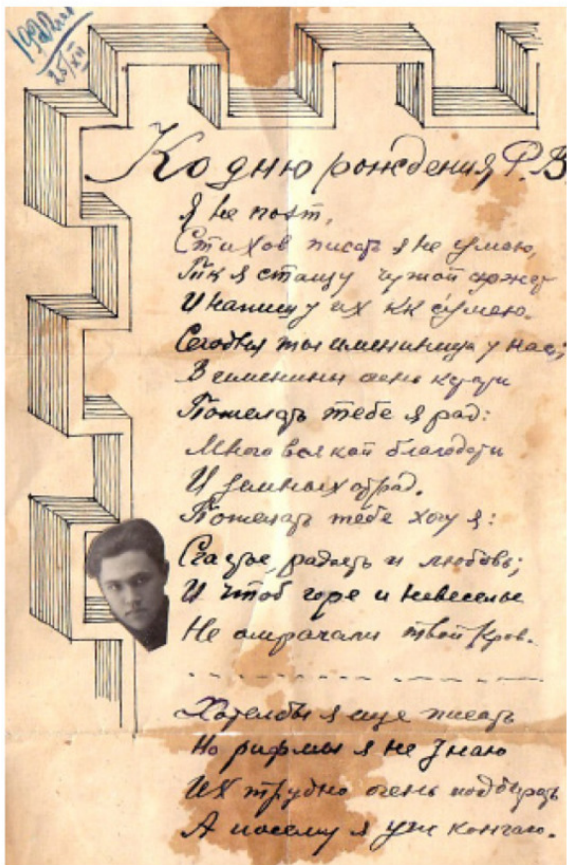 25/XII
Ко дню рождения Р.В
Я не поэт,
Стихов писать я не умею,
Тк я стащу чужой сюжет
И напишу их кк сумею.
Сегодня ты именинница у нас;
В именины очень кстати
Пожелать тебе я рад:
Много всякой благодати
И земных отрад.
Пожелать тебе хочу я:
Счастье, радость и любовь;
И чтоб горе и невеселье
Не омрачали твой кров.
Хотел бы я еще писать
Но рифмы я не знаю
Их трудно очень подбирать
А посему я уж кончаю.